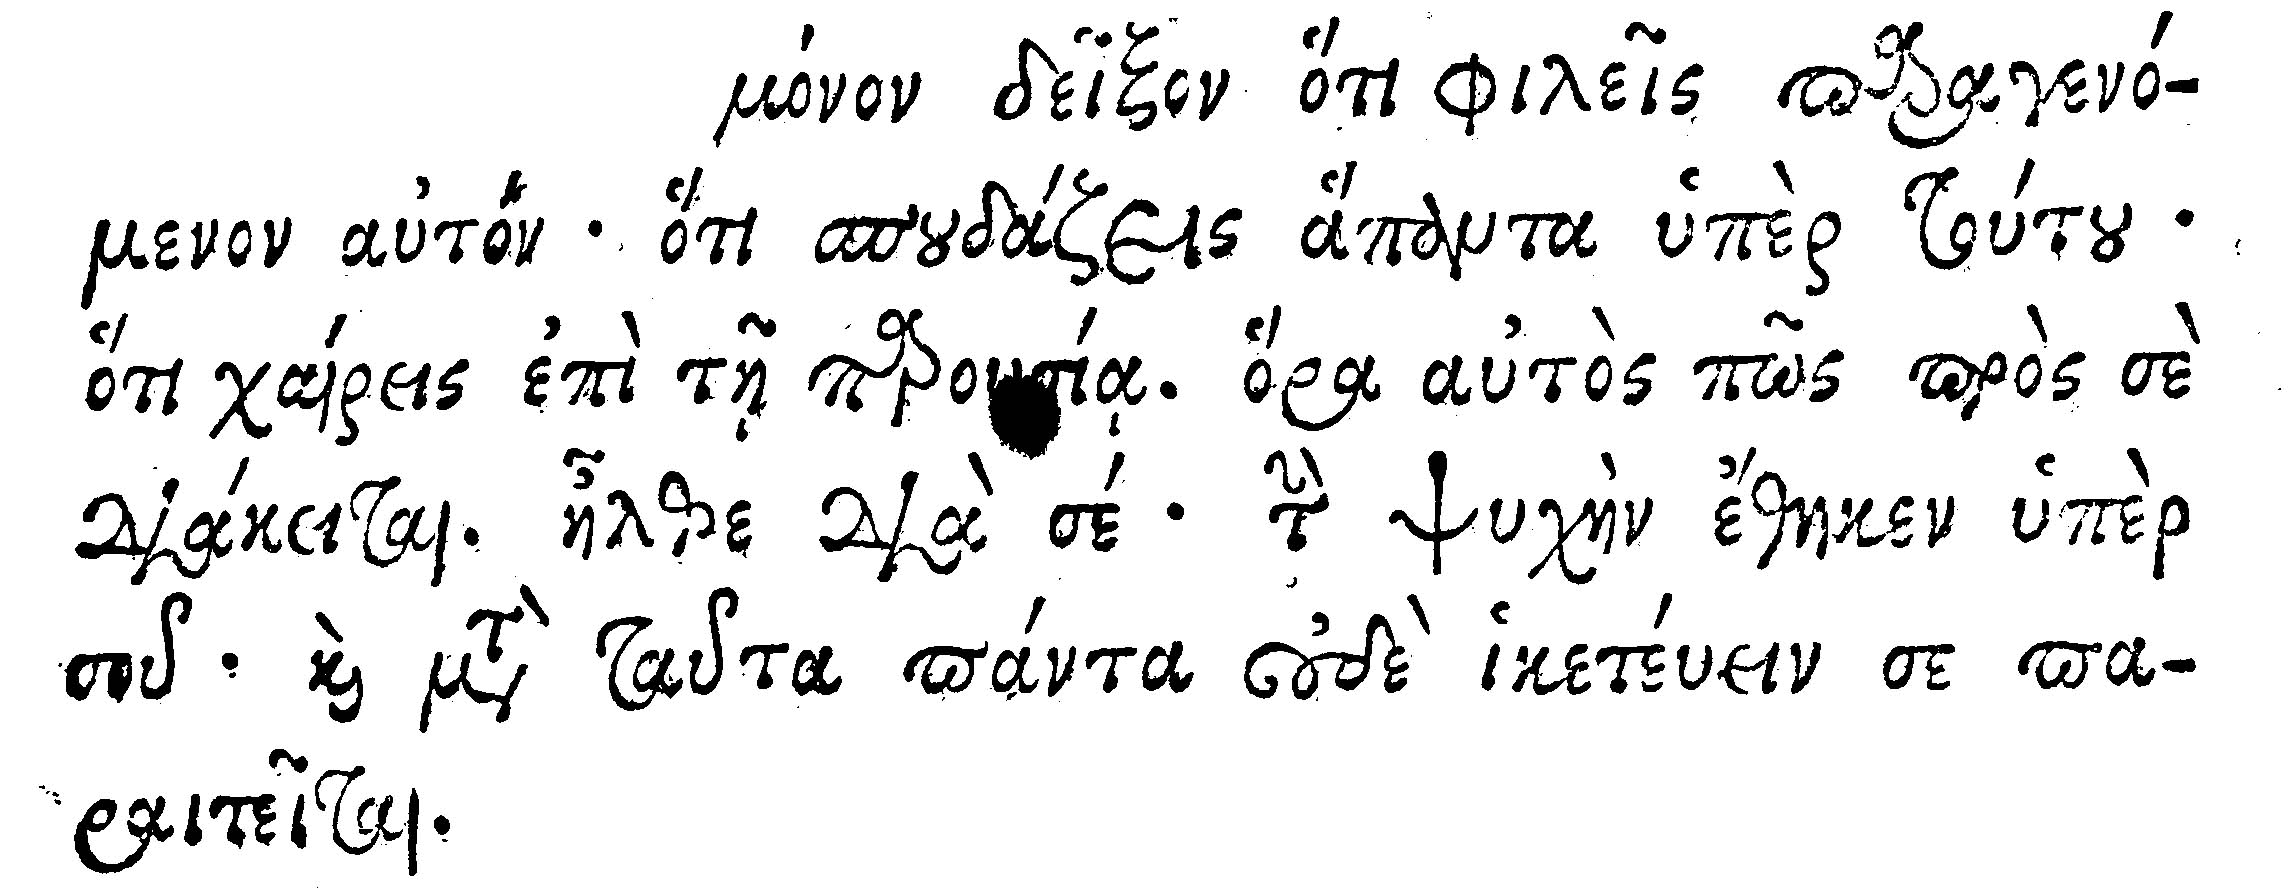 μόνον δεῖξον ὅτι φιλεῖς παραγενό-
μενον αὐτόν · ὅτι σπουδάζεις ἅπαντα ὑπὲρ τούτου ·
ὅτι χαίρεις ἐπὶ τῇ παρουσίᾳ. ὅρα αὐτὸς πῶς πρὸς σὲ
διάκειται. ἦλθε διὰ σέ · τὴν ψυχὴν ἔθηκεν ὑπὲρ
σοῦ · καὶ μετὰ ταῦτα πάντα οὐδὲ ἱκετεύειν σε πα-
ραιτεῖται.